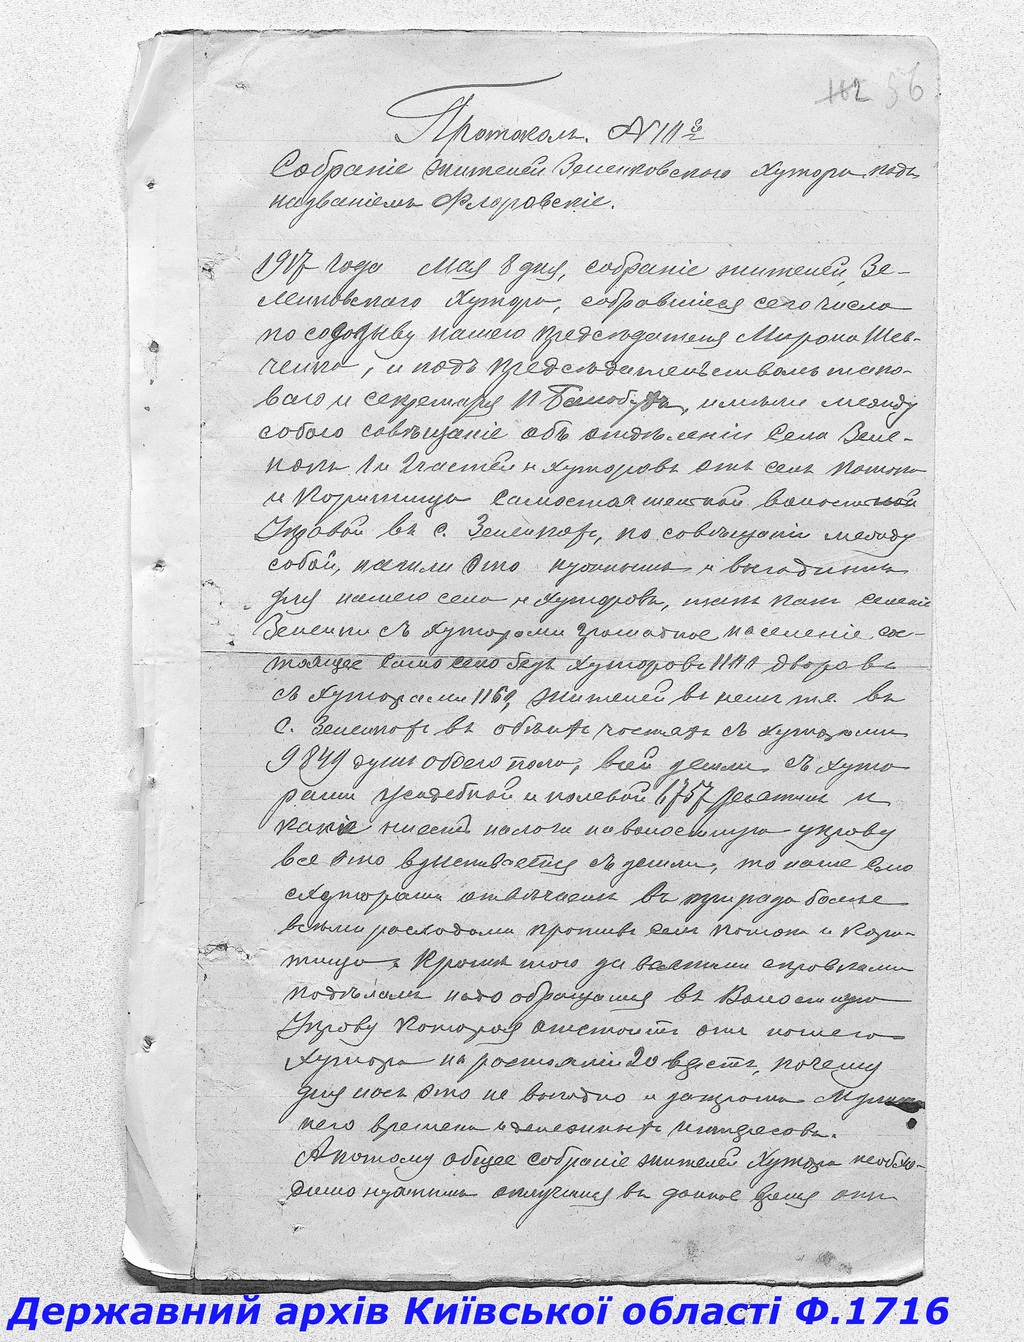 162 56
Протоколъ. N III й
Собраніе жителей Зеленковского Хутора подъ
названіемъ Флоровскіе.
1917 года Мая 8 дня, собраніе жителей Зе-
ленковского Хутора, собравшіеся сего числа
по созыву нашего предсѣдателя Мирона Шев-
ченка, и подъ предсѣдательствомъ тако-
ваго и секретаря имѣли между
собою совѣщаніе объ отдѣленіи Села Зеле-
покъ 1 и 2 частей и хуторовъ отъ селъ
и самостоятельной волостной
Управой въ с. Зеленкахъ, по совѣщаніи между
собой, нашли это нужнымъ и выгоднымъ
для нашего села и хуторовъ, такъ какъ селеніе
Зеленки съ хуторами громадное населеніе сос-
тоящее само село безъ хуторовъ 1111 дворовъ
съ хуторами 1169, жителей въ немъ т.е. въ
с. Зеленкахъ въ обѣихъ частяхъ съ хуторами
9849 душъ обоего пола, всей земли съ хуто
рами усадебной и полевой 6757 десятинъ и
какіе налоги на волостную управу
все это взыскивается съ земли, то наше село
съ хуторами отвѣчаетъ въ три раза болѣе
всѣми расходами противъ селъ и
Кромѣ того за справками
надо обращаться въ Волостную
Управу которая отстоитъ отъ нашего
Хутора на растояніи 20 верстъ, почему
для насъ это не выгодно и затрата
него времени и денежныхъ интересовъ.
А потому общее собраніе жителей Хутора необхо-
димо нужнымъ отлучится въ данное время отъ
Державний архів Київської області Ф.1716